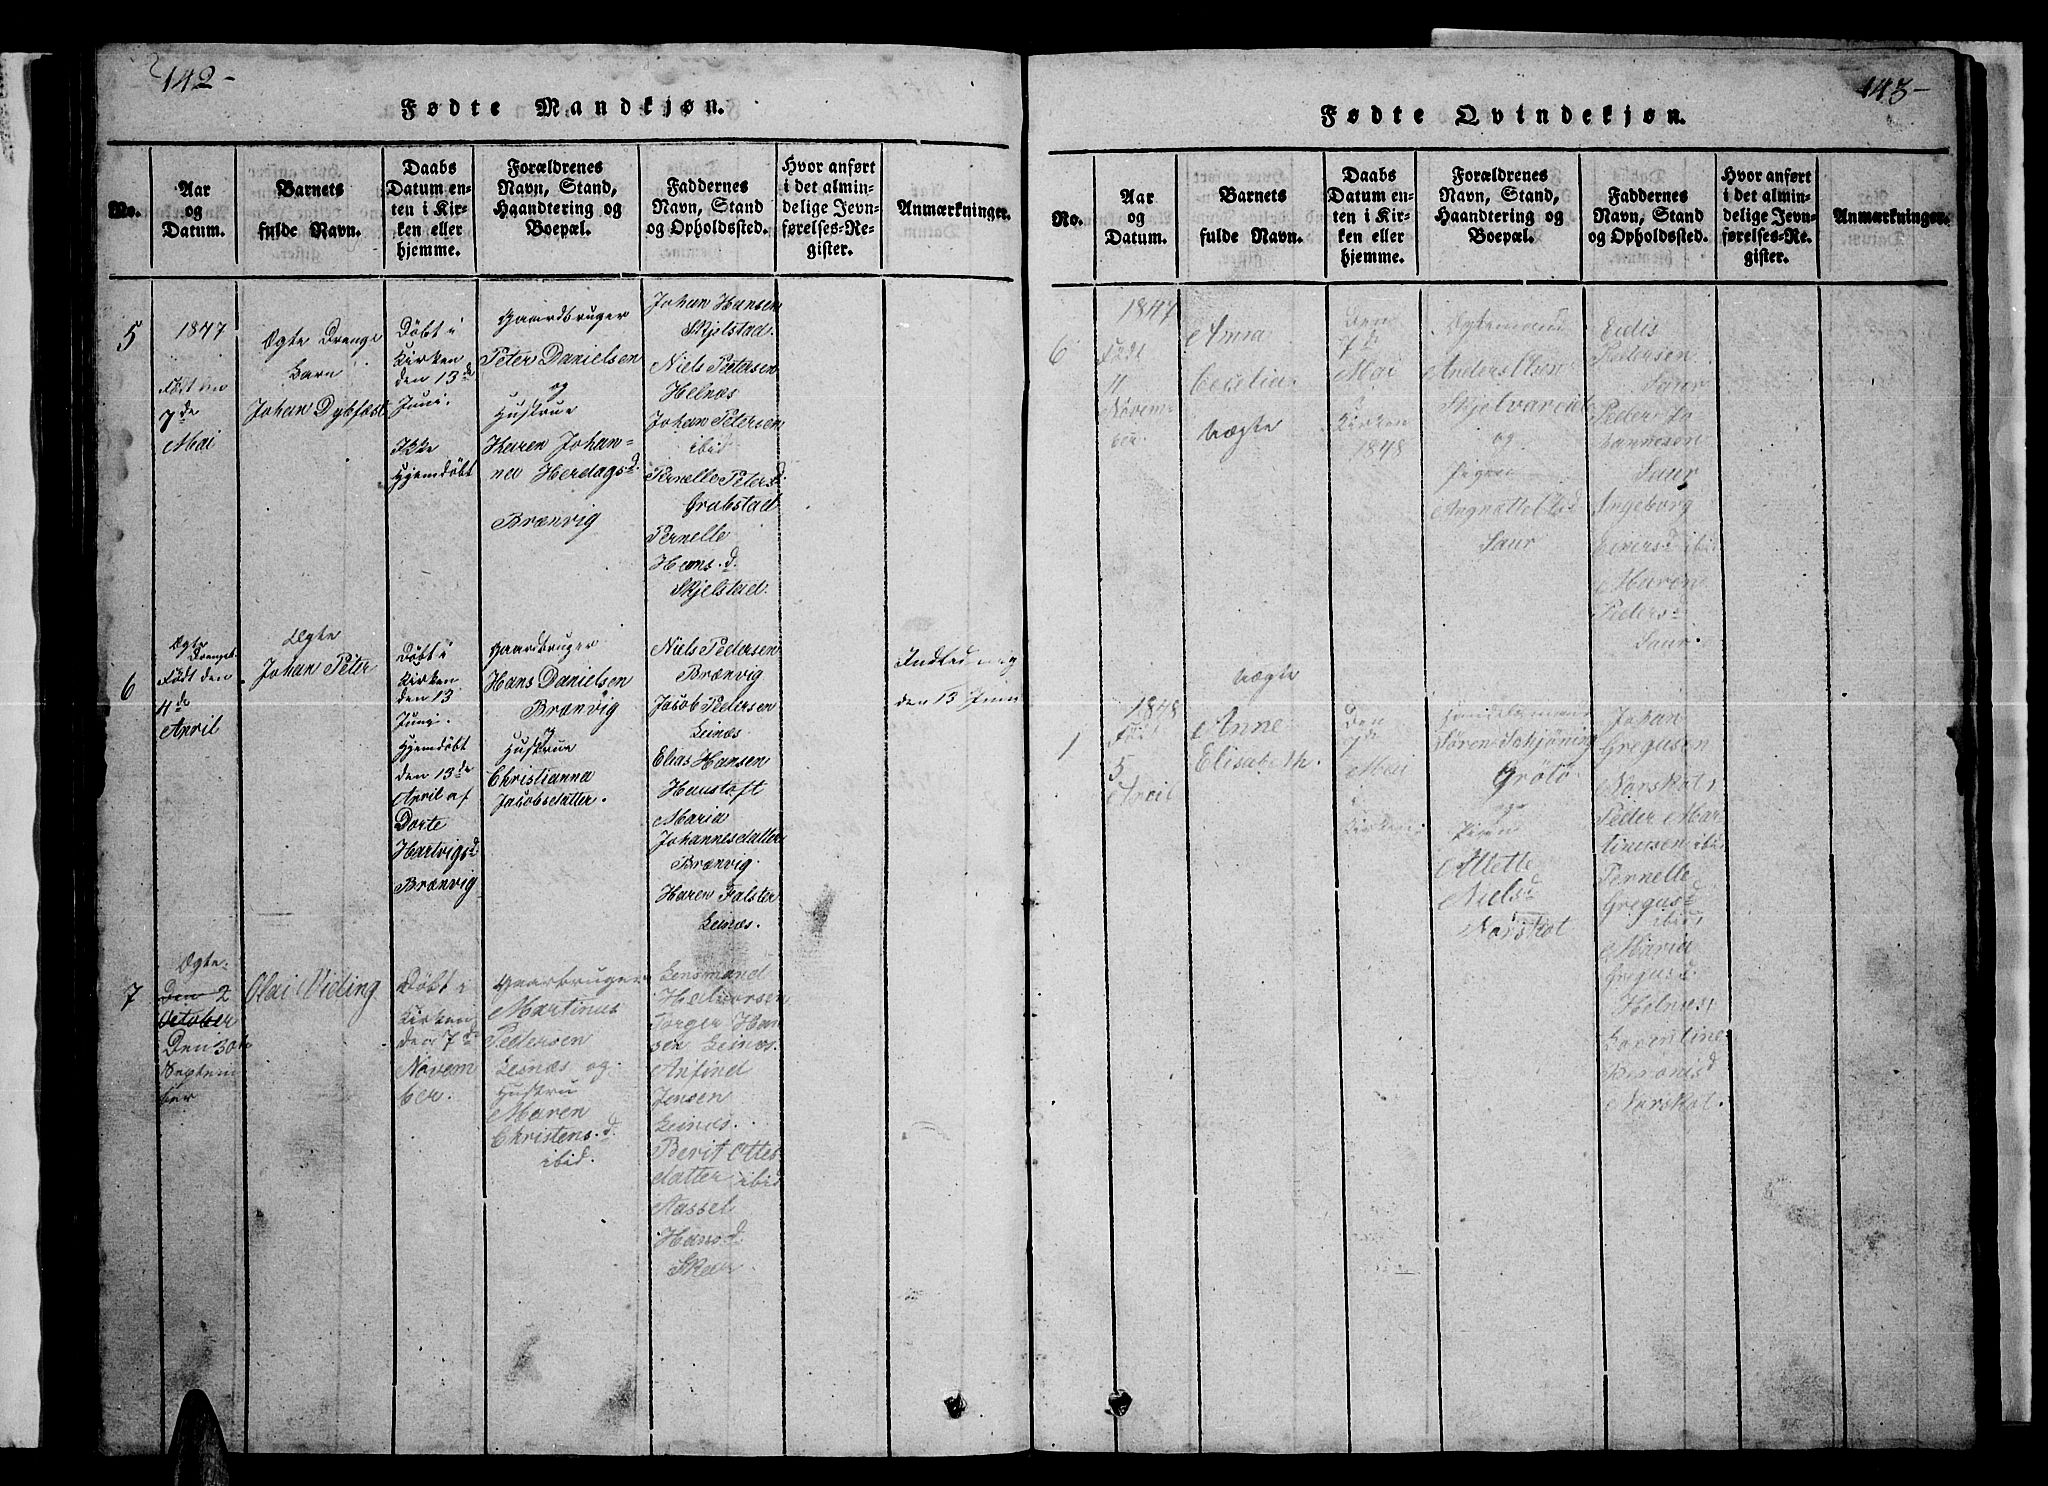 142-
Fødte Mandkjøn.
No.
Aar
og
Datum.
Barnets
fulde Navn.
Daabs
Datum en-
ten i Kir-
ken eller
hjemme.
Forældrenes
Navn, Stand,
Haandtering og
Boepæl.
Faddernes
Navn, Stand
og Opholdssted.
Hvor anført
i det almin-
delige Jevn-
førelses-Re-
gister.
Anmærkninger.
5
1847
Født den
7de
Mai
Ægte Drenge
Barn
Johan Dybfest
Døbt i
Kirken
den 13de
Juni.
Ikke
Hjemdøbt
Gaardbruger
Peter Danielsen
og
Hustrue
Karen Johan-
na Herdagsd.
Brænvig
Johan Hansen
Skjelstad.
Niels Petersen
Helnæs
Johan Petersen
ibid
Pernelle Petersd.
Grabstad
Pernelle
Hans.d.
Skjelstad.
6
Ægte
Drengeb.
Født den
4de
April
Ægte
Johan Peter
Døbt i
Kirken
den 13
Juni.
Hjemdøbt
den 13de
April af
Dorte
Hartvigsd.
Brænvig
Gaardbruger
Hans Danielsen
Brænvig
og
Hustrue
Christianna
Jacobsdatter.
Niels Pedersen
Brænvig
Jacob Pedersen
Leinæs
Elias Hansen
Maria
Johannesdatter
Brænvig
Karen Falster
Leinæs.
den 13 Juni
7
Ægte
Den 2
October
Den 30te
Septem
ber
Olai Vieling
Døbt i
Kirken
den 7d
Novem
ber.
Gaarbruger
Martinus
Pedersen
Leinæs og
Hustru
Maren
Christens.d.
ibid.
Lensmand
Halvorsen
Torger Han
sen Leinæs.
Anfind
Jensen
Leinæs.
Berit Ottes
datter ibid
Aassel
Hans.d.
143-
Fødte Qvindekjøn.
No.
Aar
og
Datum.
Barnets
fulde Navn.
Daabs
Datum en-
ten i Kir-
ken eller
hjemme.
Forældrenes
Navn, Stand,
Haandtering og
Boepæl.
Faddernes
Navn, Stand
og Opholdssted.
Hvor anført
i det almin-
delige Jevn-
førelses-Re-
gister.
Anmærkninger.
6
1847
Født
11
Novem-
ber.
Anna
Cecelia.
Uægte
Den
7de
Mai
i
Kirken
1848
Ægtemand
Anders Olsen
Skjelvareid
og
Pigen
Saur
Eidis
Pedersen
Saur
Peder Jo-
hannesen
Saur
Ingeborg
Eversd. ibid
Maren
Peders-
Saur.
1
1848
Født
5
April
Uægte
Anne
Elisabeth.
Den
7de
Mai
i
Kirken.
Handelsmand
Søren Schjøning
Grötö
og
Pigen
Allette
Nielsd.
Norskot
Johan
Gregusen
Norskot,
Peder Mar-
tinusen ibid
Pernelle
Gregusd.
ibid,
Maria
Gregusd.
Helnæs,
Laventine
Norskot.